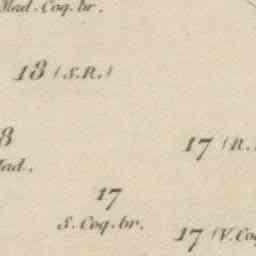 Mad. Coq. br.
18 (S.R.)
8
Mad.
17 (R.
17
S. Coq. br.
17 (V. Coq